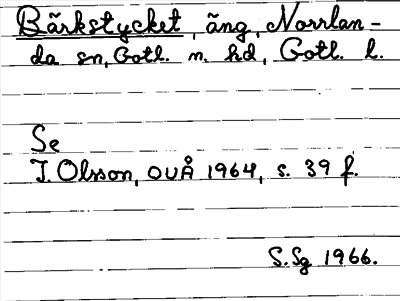 Bärkstycket, äng, Norrlan-
da sn, Gotl. n. hd, Gotl. l.
Se
I. Olsson, OUÅ 1964, s. 39 f.
S.Sg 1966.